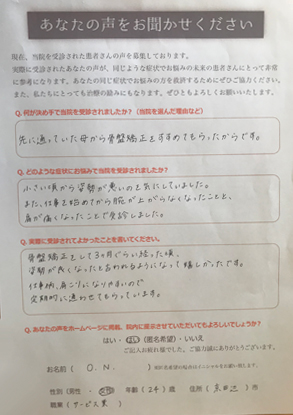 あなたの声をお聞かせください
現在、当院を受診された患者さんの声を募集しております。
実際に受診されたあなたの声が、同じような症状でお悩みの未来の患者さんにとって非常
に参考になります。あなたの同じ症状でお悩みの方を救済するためにぜひご協力ください。
また、私たちにとっても治療の励みにもなります。ぜひともよろしくお願いいたします。
Q. 何が決め手で当院を受診されましたか?(当院を選んだ理由など)
先に通っていた母から骨盤矯正をすすめてもらったからです。
Q. どのような症状にお悩みで当院を受診されましたか?
小さい頃から姿勢が悪いのを気にしていました。
また、仕事を始めてから腕が上がらなくなったことと、
肩が痛くなったことで受診しました。
Q. 実際に受診されてよかったことを書いてください。
骨盤矯正をして3ヶ月ぐらい経った頃、
姿勢が良くなったと言われるようになって嬉しかったです。
仕事柄、肩こりになりやすいので
定期的に通わせてもらっています。
Q. あなたの声をホームページに掲載、院内に掲示させていただいてもよろしいでしょうか?
はい・はい(匿名希望)・いいえ
ご記入お疲れ様でした。ご協力誠にありがとうございます。
お名前( O.N. )
性別(男性・女性) 年齢(24)歳 住所(京田辺)市
職業(サービス業)